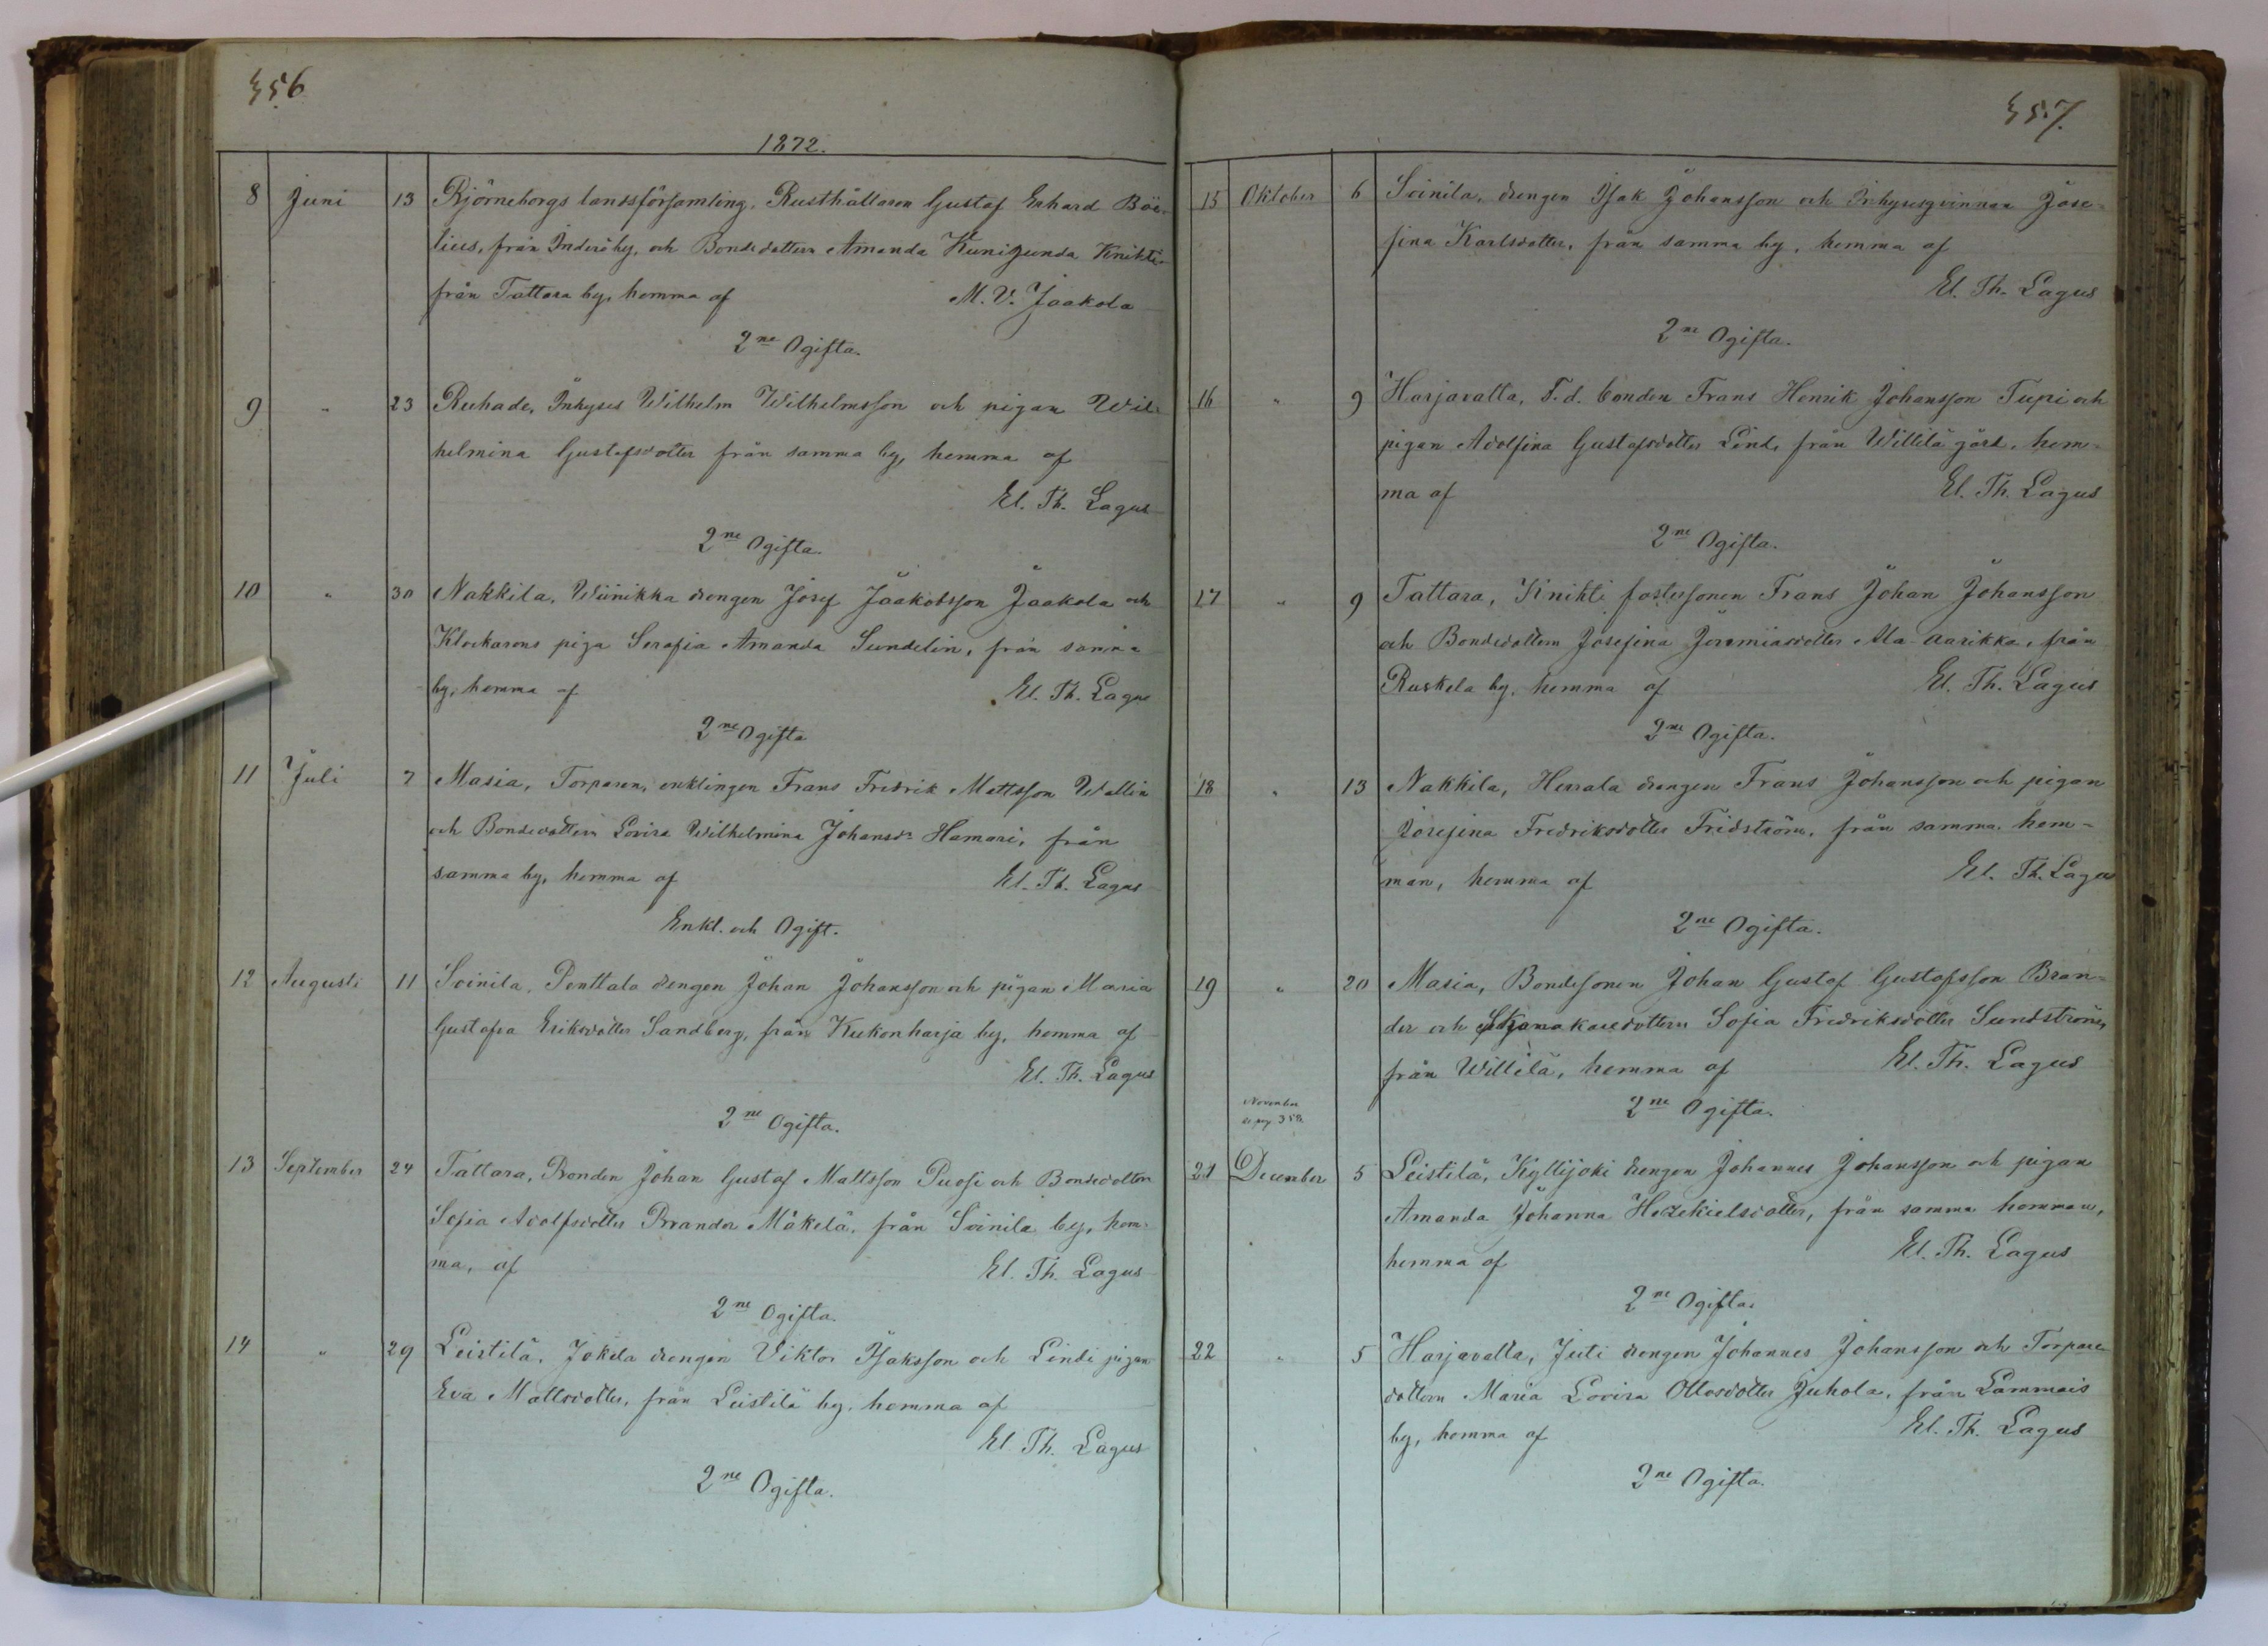 356
1872.
8 Juni 13 Björneborgs landsförsamling, Rusthållaren Gustaf Erhard Böe-
lius, från Inderö by, och Bondedottern Amanda Kunigunda Knihti
från Tattara by, hemma af M. V. Jaakola
2ne Ogifta.
9 " 23 Ruhade, Inhyses Wilhelm Wilhelmsson och pigan Wil-
helmina Gustafsdotter från samma by, hemma af
El. Th. Lagus
2ne Ogifta.
10 " 30 Nakkila, Wiinikka drengen Josef Jaakobsson Jaakola och
Klockarens piga Serafia Amanda Sundelin, från samma
by, hemma af El. Th. Lagus
2ne Ogifta
11 Juli 7 Masia, Torparen, enklingen Frans Fredrik Mattsson Wallin
och Bondedottern Lovisa Wilhelmina Johansdr Hamari, från
samma by, hemma af El. Th. Lagus
Enkl. och Ogift.
12 Augusti 11 Soinila, Penttala drengen Johan Johansson och pigan Maria
Gustafva Eriksdotter Sandberg, från Kukonharja by, hemma af
El. Th. Lagus
2ne Ogifta.
13 September 24 Tattara, Bonden Johan Gustaf Mattsson Puosi och Bondedottern
Sofia Adolfsdotter Brander Mäkelä, från Soinila by, hem-
ma, af El. Th. Lagus
2ne Ogifta.
14 " 29 Leistilä, Jokela drengen Viktor Isaksson och Lindi pigan
Eva Mattsdotter, från Leistilä by, hemma af
El. Th. Lagus
2ne Ogifta.
357.
15 Oktober 6 Soinila, drengen Isak Johansson och Inhysesqvinnan Jose-
fina Karlsdotter, från samma by, hemma af
El. Th. Lagus
2ne Ogifta.
16 " 9 Harjavalta, F.d. bonden Frans Henrik Johansson Tupi och
pigan Adolfina Gustafsdotter Lind, från Willilä gård, hem-
ma af El. Th. Lagus
2ne Ogifta.
17 " 9 Tattara, Knihti fostersonen Frans Johan Johansson
och Bondedottern Josefina Jeremiasdotter Ala-Aarikka, från
Ruskela by, hemma af El. Th. Lagus
2ne Ogifta.
18 " 13 Nakkila, Herrala drengen Frans Johansson och pigan
Josefina Fredriksdotter Fridström, från samma hem-
man, hemma af El. Th. Lagus
2ne Ogifta.
19 " 20 Masia, Bondesonen Johan Gustaf Gustafsson Bran-
der och Skomakaredottern Sofia Fredriksdotter Sundström,
från Willilä, hemma af El. Th. Lagus
2ne Ogifta.
November
pag 358
21 December 5 Leistilä, Kyllijoki drengen Johannes Johansson och pigan
Amanda Johanna Hezekielsdotter, från samma hemman,
hemma af El. Th. Lagus
2ne Ogifta.
22 " 5 Harjavalta, Juti drengen Johannes Johansson och Torpare-
dottern Maria Lovisa Ottosdotter Juhola, från Lammais
by, hemma af El. Th. Lagus
2ne Ogifta.